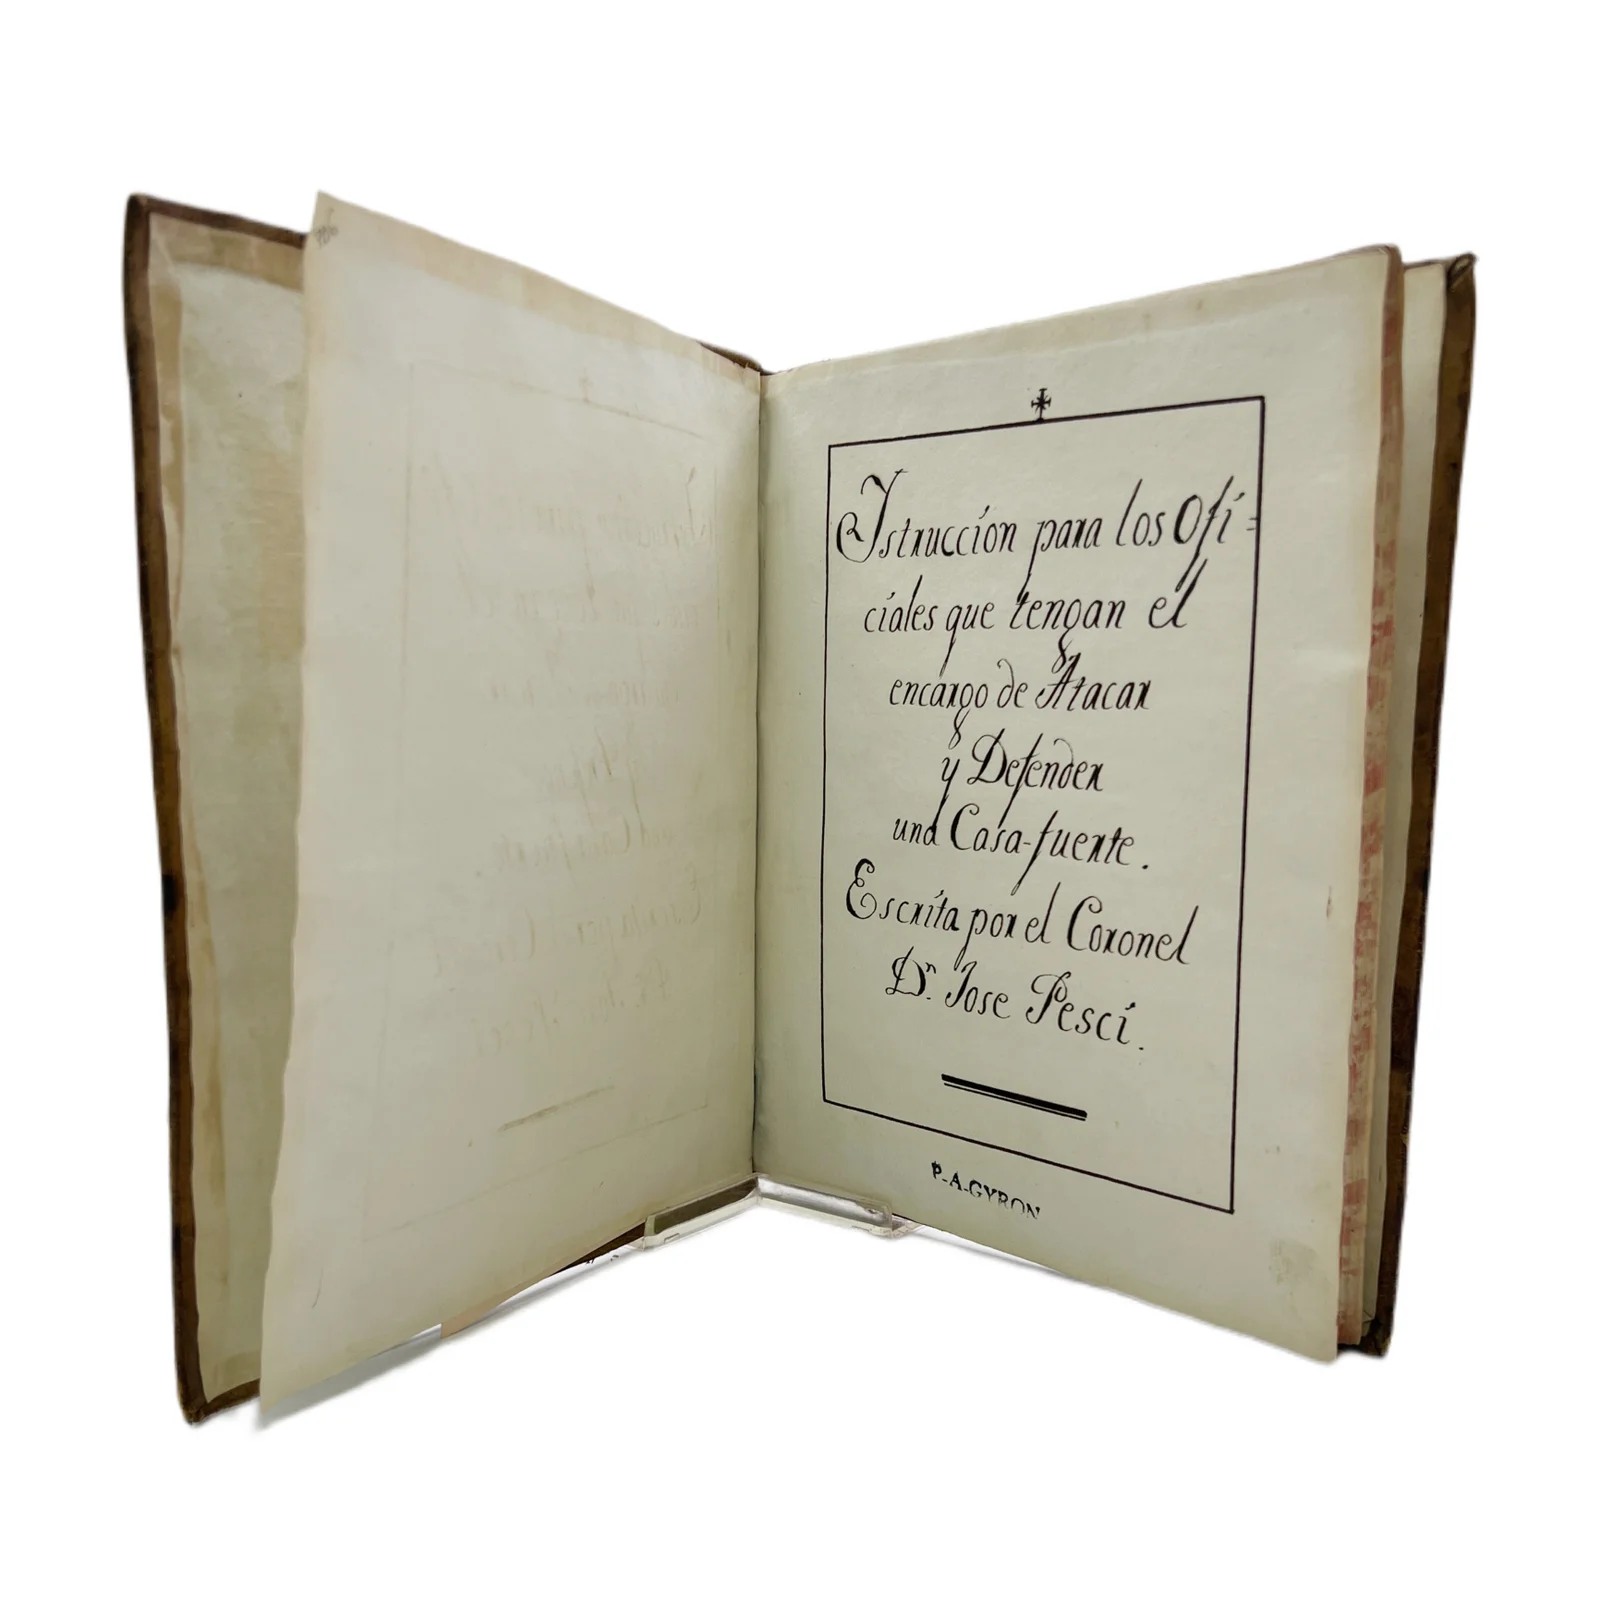 Istruccion para los Ofi=
ciales que tengan el
encargo de Atacar
y Defender
una Casa-fuerte.
Escrita por el Coronel
Dn. Jose Pesci.
P-A-GYRON